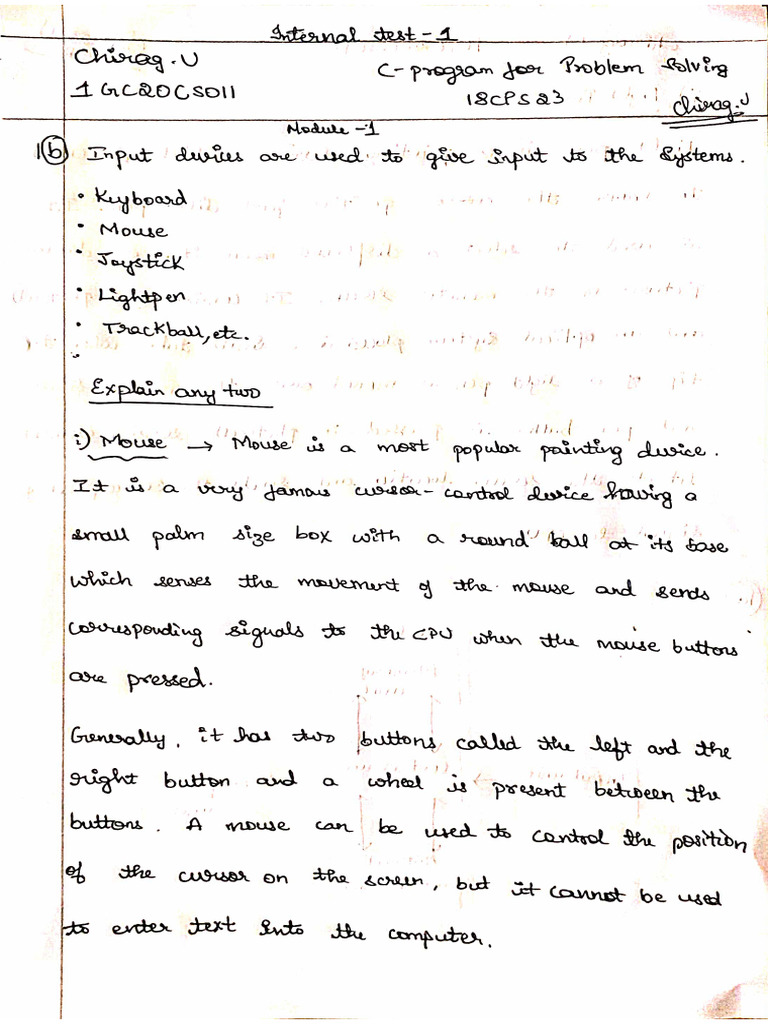 Internal test - 1
Chirag.U
C-program for Problem Solving
1GC20CS011
18CPS23
Chirag.U
Module -1
1(b) Input devices are used to give input to the Systems.
• Keyboard
• Mouse
• Joystick
• Lightpen
• Trackball, etc.
Explain any two
i) Mouse → Mouse is a most popular painting device.
It is a very famous cursor-control device having a
small palm size box with a round ball at its base
which senses the movement of the mouse and sends
corresponding signals to the CPU when the mouse buttons
are pressed.
Generally, it has two buttons called the left and the
right button and a wheel is present between the
buttons. A mouse can be used to control the position
of the cursor on the screen, but it cannot be used
to enter text into the computer.